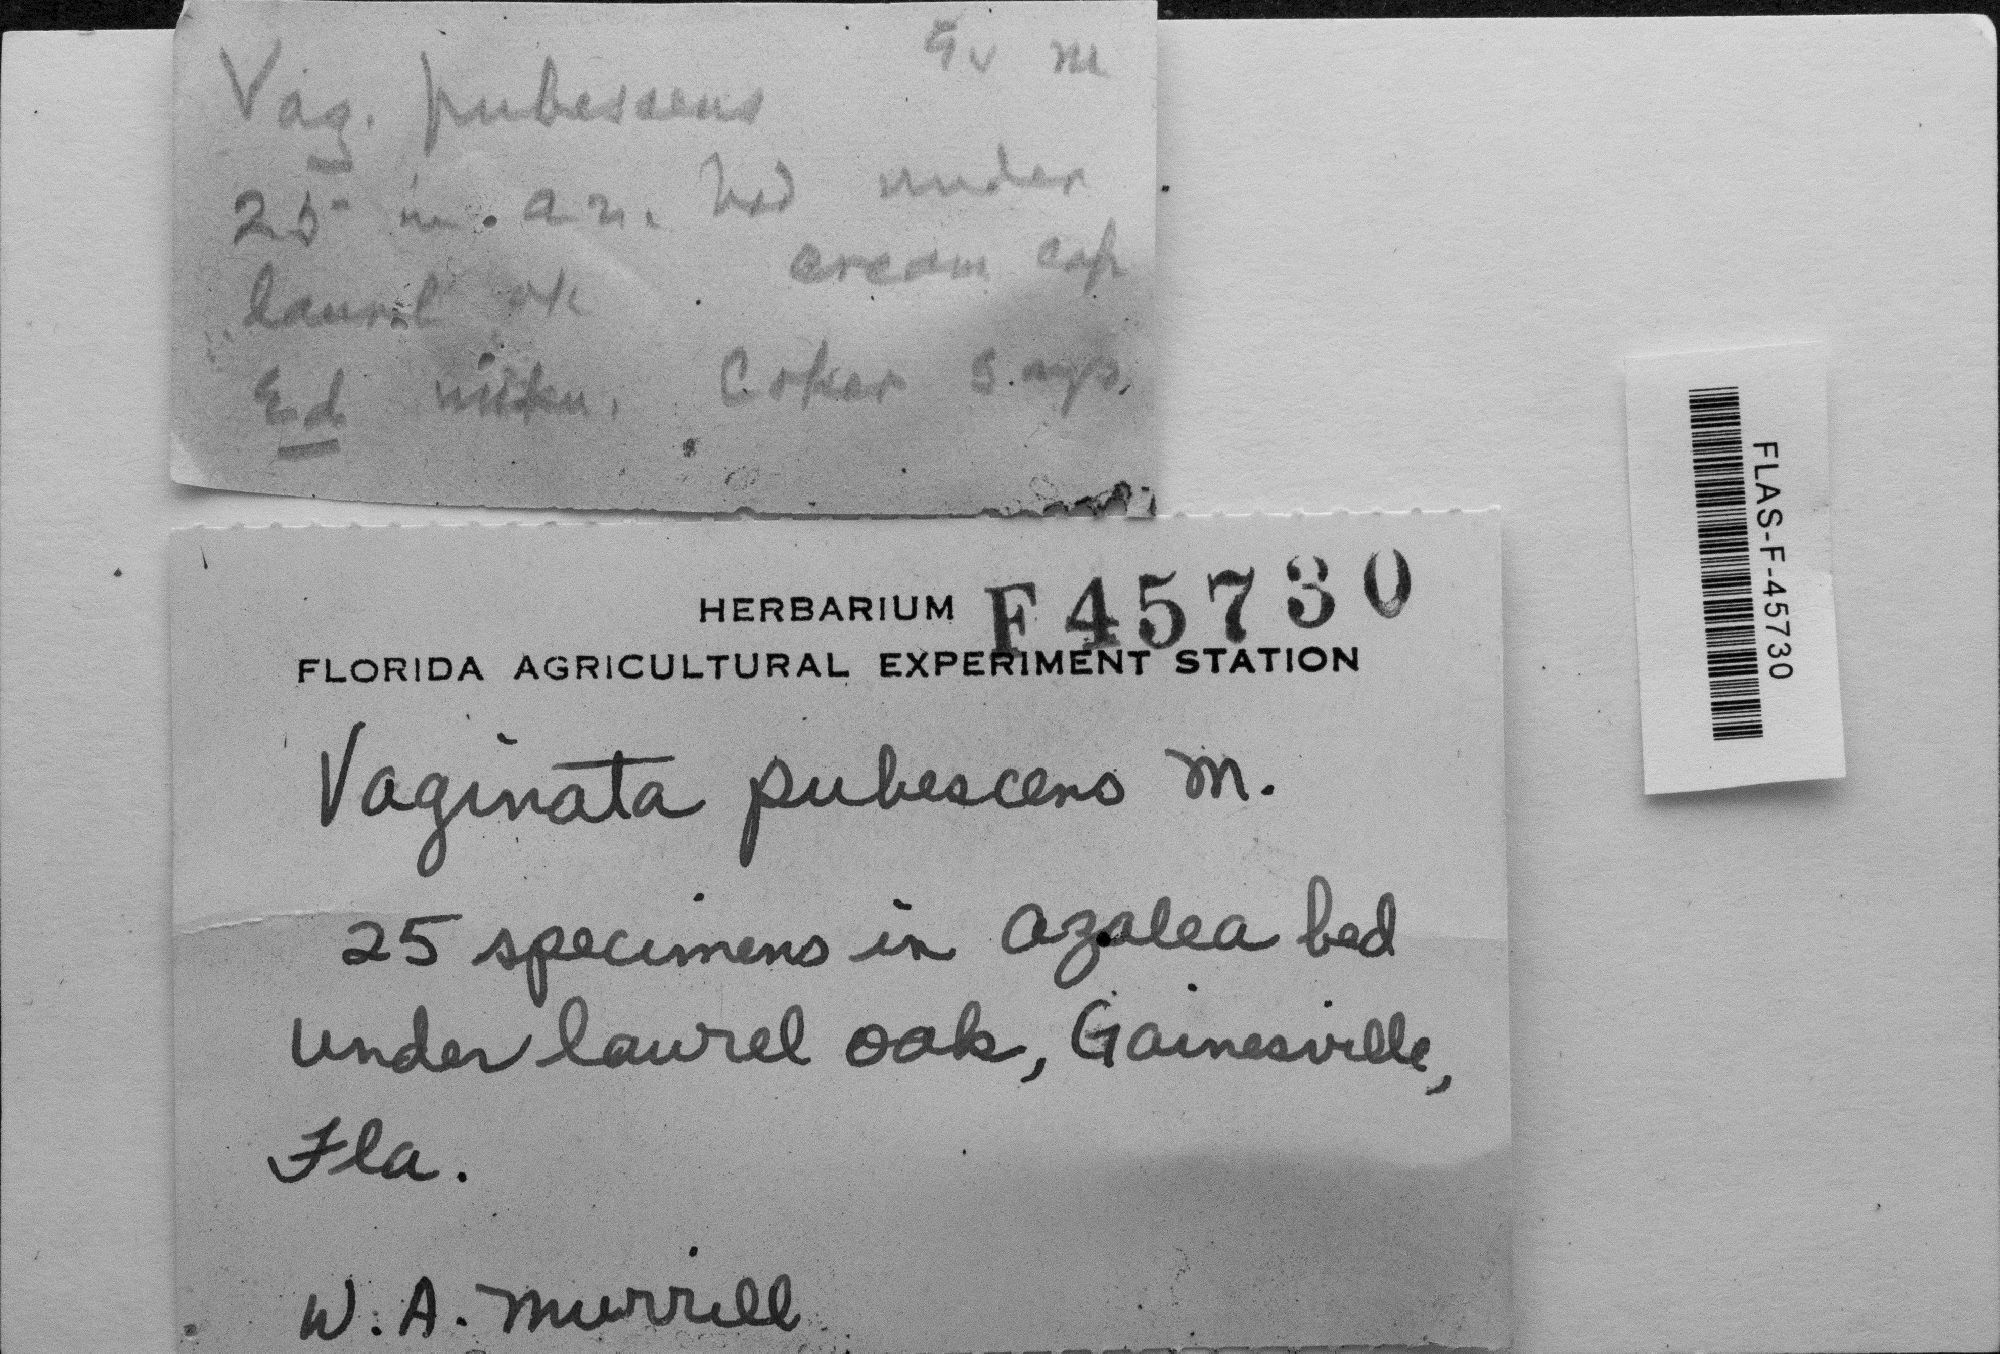 Gv M
Vag. pubescens
25 in. az. bed under
laurel ok cream cap
Ed Coker says.
HERBARIUM F45730
FLORIDA AGRICULTURAL EXPERIMENT STATION
Vaginata pubescens M.
25 specimens in azalea bed
under laurel oak, Gainesville,
Fla.
W. A. Murrill
FLAS-F-45730